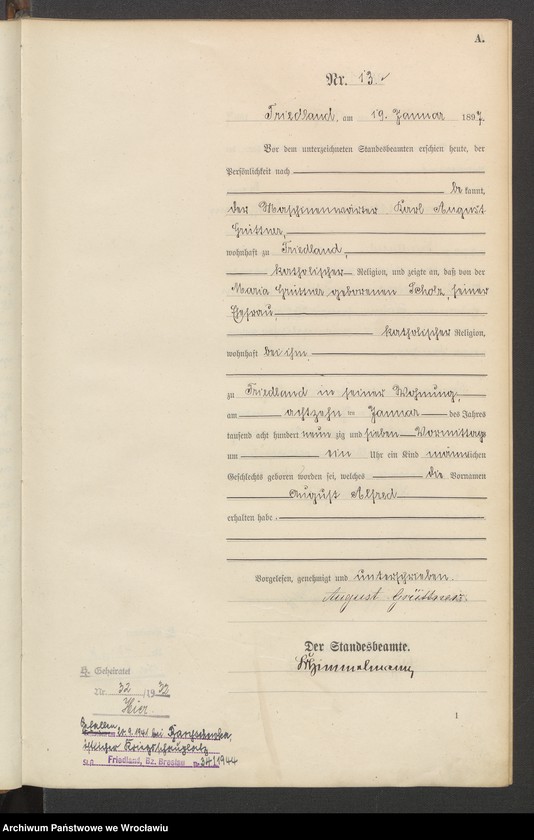 A.
Nr. 13.
Friedland, am 19. Januar 1897.
Vor dem unterzeichneten Standesbeamten erschien heute, der
Persönlichkeit nach
be kannt,
der Maschinenwärter Karl August
Grüttner,
wohnhaft zu Friedland,
katholischer Religion, und zeigte an, daß von der
Maria Grüttner geborenen Scholz, seiner
Ehefrau,
katholischer Religion,
wohnhaft bei ihm
zu Friedland in seiner Wohnung,
am achtzehn ten Januar des Jahres
tausend acht hundert neun zig und sieben Vormittags
um ein Uhr ein Kind männlichen
Geschlechts geboren worden sei, welches die Vornamen
August Alfred
erhalten habe.
Vorgelesen, genehmigt und unterschrieben.
August Grüttner.
Der Standesbeamte.
Himmelmann
H. Geheiratet
Nr. 32 /1932
Hier
Gefallen 20.9.1941 bei
östlicher Kriegsschauplatz
St.A. Friedland, Bz. Breslau Nr. 34/1944
1
Archiwum Państwowe we Wrocławiu